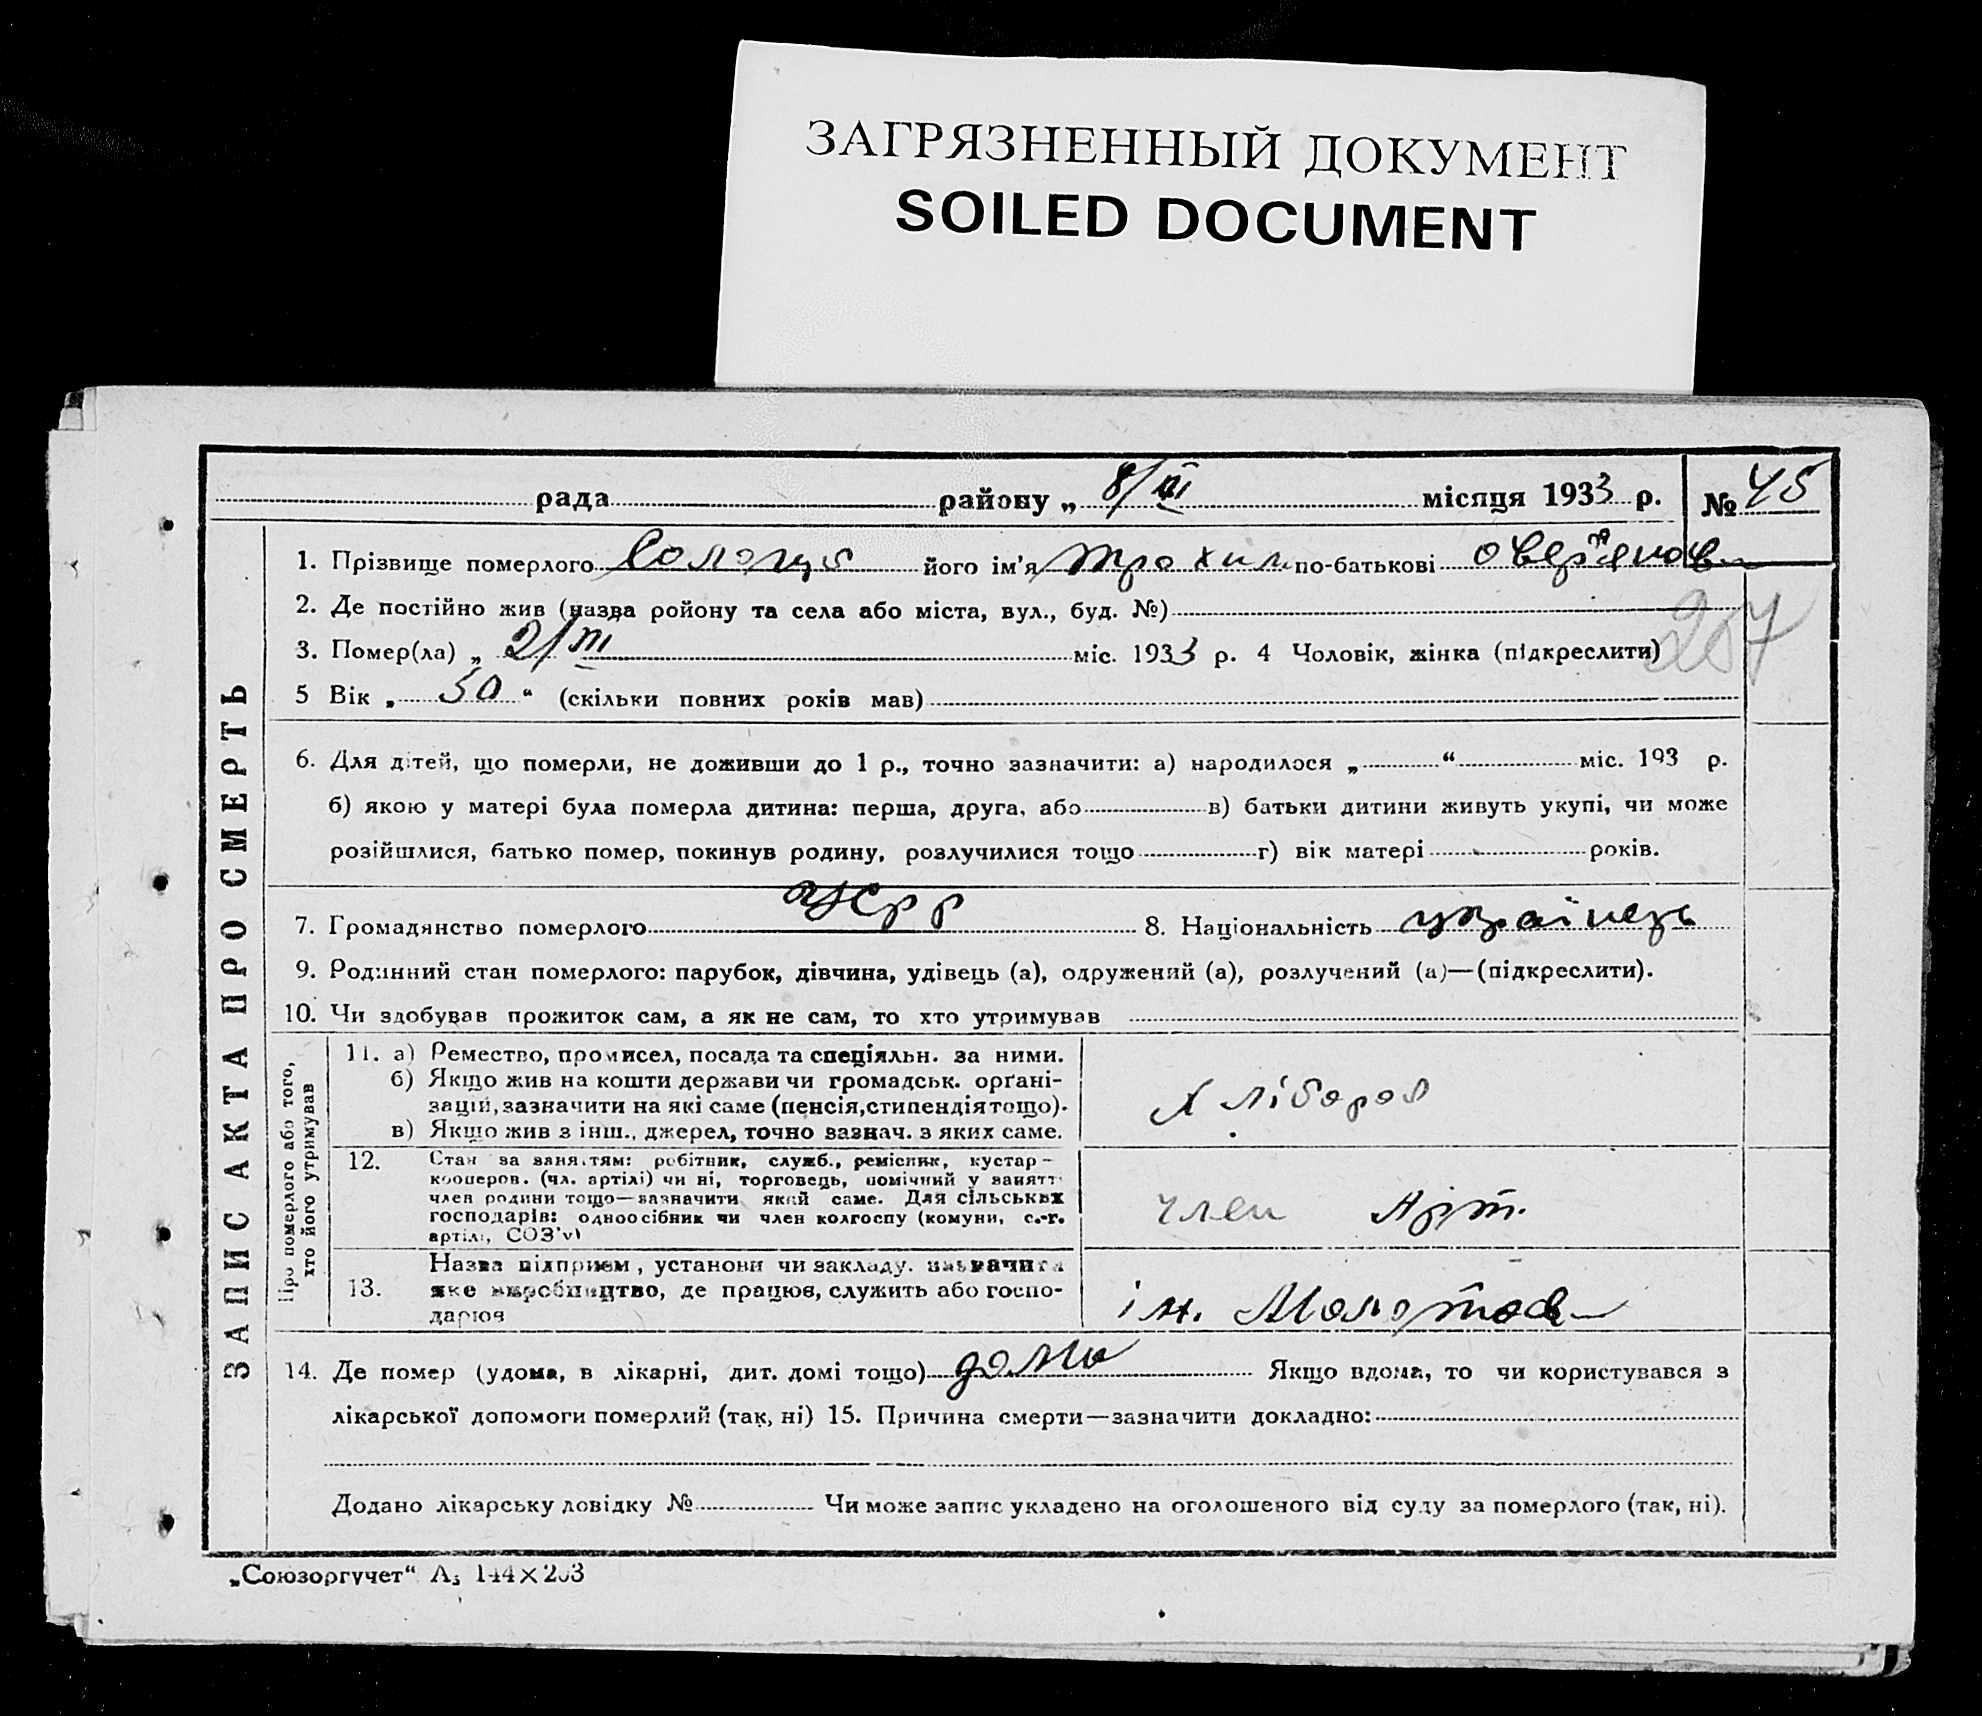 ЗАГРЯЗНЕННЫЙ ДОКУМЕНТ
SOILED DOCUMENT
рада району „ 8/III місяця 1933 р. № 45
1. Прізвище померлого його ім'я Трохим по-батькові
2. Де постійно жив (назва ройону та села або міста, вул., буд. №)
267
3. Помер(ла) „ 2/III міс. 1933 р. 4 Чоловік, жінка (підкреслити)
5 Вік „ 50 “ (скільки повних років мав)
6. Для дітей, що померли, не доживши до 1 р., точно зазначити: а) народилося „ “ міс. 193 р.
б) якою у матері була померла дитина: перша, друга, або в) батьки дитини живуть укупі, чи може
розійшлися, батько помер, покинув родину, розлучилися тощо г) вік матері років.
7. Громадянство померлого УСРР 8. Національність українець
9. Родинний стан померлого: парубок, дівчина, удівець (а), одружений (а), розлучений (а)—(підкреслити).
10. Чи здобував прожиток сам, а як не сам, то хто утримував
ЗАПИС АКТА ПРО СМЕРТЬ
Про померлого або того,
хто його утримував
11. а) Ремество, промисел, посада та спеціяльн. за ними.
б) Якщо жив на кошти держави чи громадськ. орґані-
зацій, зазначити на які саме (пенсія, стипендія тощо).
в) Якщо жив з інш., джерел, точно зазнач. з яких саме.
Хлібороб
12. Стан за заняттям: робітник, служб., ремісник, кустар—
кооперов. (чл. артілі) чи ні, торговець, помічний у занятті
член родини тощо—зазначити який саме. Для сільських
господарів: одноосібник чи член колгоспу (комуни, с.-г.
артілі, СОЗ'у)
член Арт.
13. Назва підприєм, установи чи закладу. зазначити
яке виробництво, де працює, служить або госпо-
дарює
ім. Молотова
14. Де помер (удома, в лікарні, дит. домі тощо) дома Якщо вдома, то чи користувався з
лікарської допомоги померлий (так, ні) 15. Причина смерти—зазначити докладно:
Додано лікарську довідку № Чи може запис укладено на оголошеного від суду за померлого (так, ні).
„Союзоргучет“ А₅ 144×203